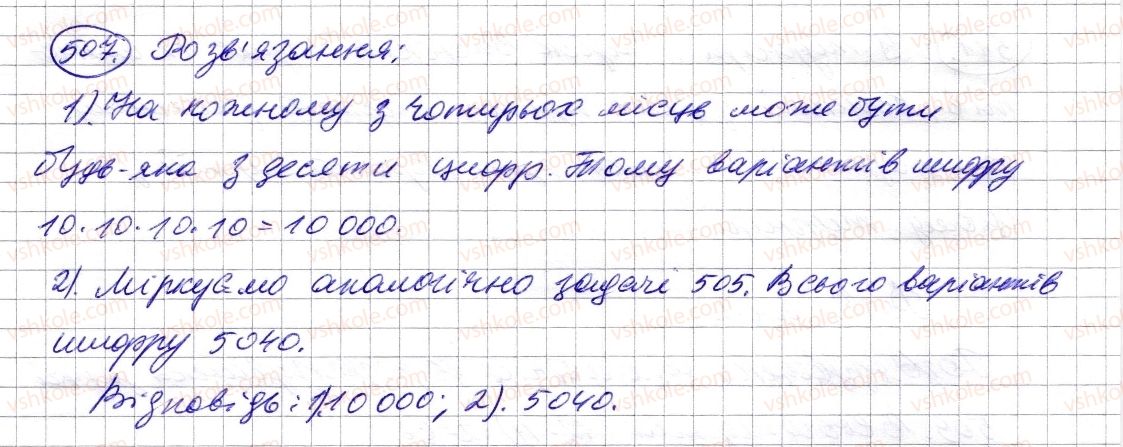 507. Розв'язання:
1). На кожному з чотирьох місць може бути
будь-яка з десяти цифр. Тому варіантів шифру
10·10·10·10=10 000.
2). Міркуємо аналогічно задачі 505. Всього варіантів
шифру 5040.
Відповідь: 1).10 000; 2). 5040.